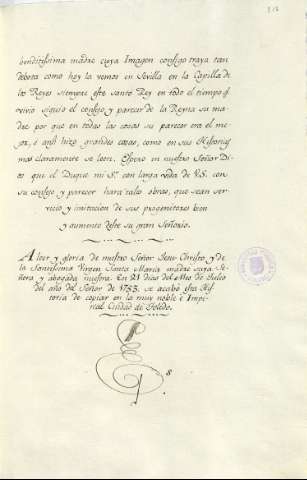 benditissima madre cuya Imagen consigo traya tan
debota como hoy la vemos en Sevilla en la Capilla de
los Reyes siempre este santo Rey en todo el tiempo q.
vivio siguio el consejo y parecer de la Reyna su ma-
dre por que en todas las cosas su parecer era el me-
jor, è ansi hizo grandes cosas, como en sus Historias
mas claramente se leen. Espero en nuestro Señor Di-
os que el Duque mi S.r con larga vida de V.S. con
su consejo y parecer hara tales obras, que sean ser-
vicio y imitacion de sus progenitores bien
y aumento deste su gran Señorio.
A loor y gloria de nuestro Señor Jesu Christo, y de
la Santissima Virgen Santa Maria madre suya Se-
ñora y abogada nuestra. En 21 dias del Mes de Julio
del año del Señor de 1753. se acabó esta His-
toria de copiar en la muy noble è Impe-
rial Ciudad de Toledo.